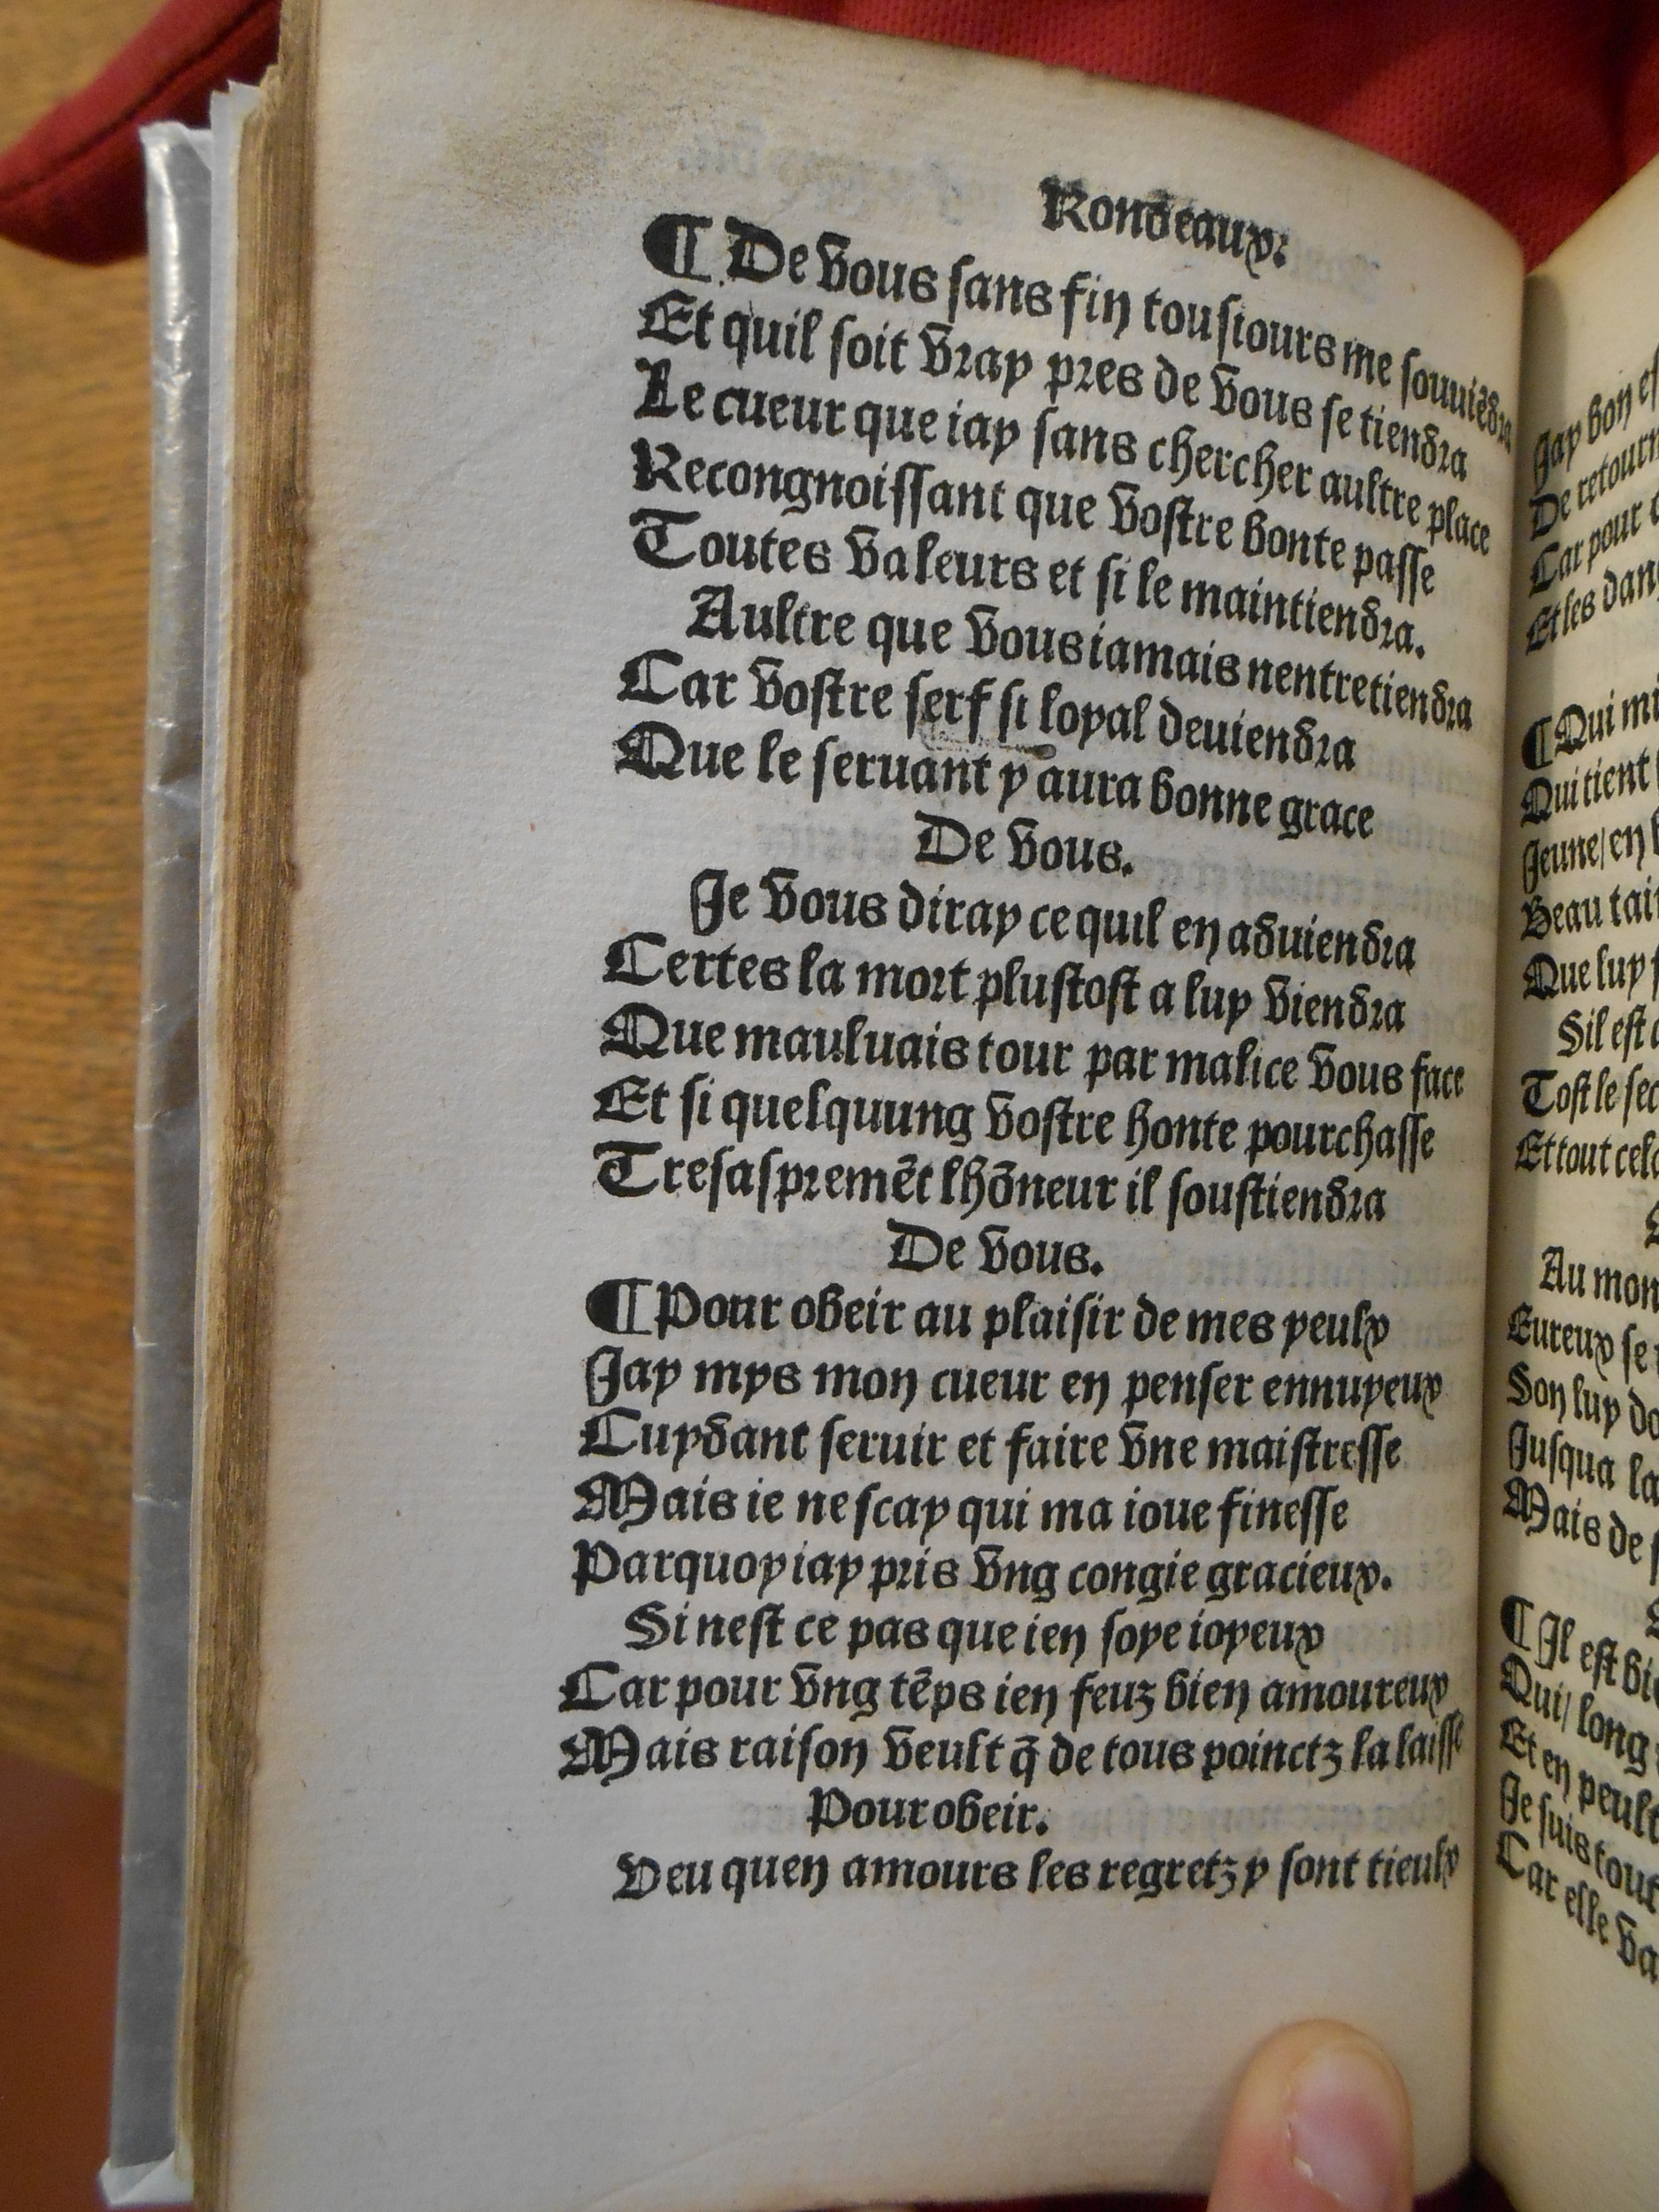 Rondeaux.
¶ De vous sans fin tousiours me souuiēdra
Et quil soit vray pres de vous se tiendra
Le cueur que iay sans chercher aultre place
Recongnoissant que vostre bonte passe
Toutes valeurs et si le maintiendra.
Aultre que vous iamais nentretiendra
Car vostre serf si loyal deuiendra
Que le seruant y aura bonne grace
De vous.
Je vous diray ce quil en aduiendra
Certes la mort plustost a luy viendra
Que mauluais tour par malice vous face
Et si quelquung vostre honte pourchasse
Tresaspremēt lhōneur il soustiendra
De vous.
¶ Pour obeir au plaisir de mes yeulx
Jay mys mon cueur en penser ennuyeux
Cuydant seruir et faire vne maistresse
Mais ie ne scay qui ma ioue finesse
Parquoy iay pris vng congie gracieux.
Si nest ce pas que ien soye ioyeux
Car pour vng tēps ien feuz bien amoureux
Mais raison veult q̄ de tous poinctz la laisse
Pour obeir.
Veu quen amours les regretz y sont tieulx
Jay bon
De retourn
Car pour
Et les dan
¶ Qui
Qui tient
Jeune/ en
Beau
Que luy
Sil est
Tost le
Et tout
Au mon
Eureux se
Son luy
Jusqua la
Mais de
¶ Il est
Qui/ long
Et en peult
Je suis tout
Car elle